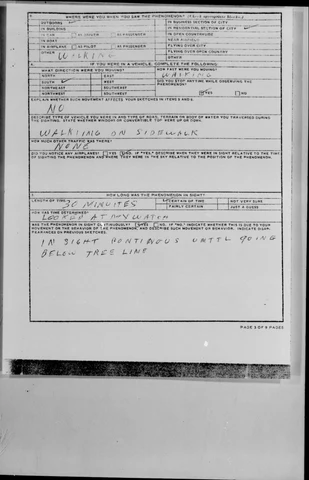 WHERE WERE YOU WHEN YOU SAW THE PHENOMENON?
OUTDOORS ✓ IN BUSINESS SECTION OF CITY
IN BUILDING IN RESIDENTIAL SECTION OF CITY ✓
IN CAR AS DRIVER AS PASSENGER IN OPEN COUNTRYSIDE
IN BOAT NEAR AIRFIELD
IN AIRPLANE AS PILOT AS PASSENGER FLYING OVER CITY
OTHER WALKING FLYING OVER OPEN COUNTRY
OTHER
IF YOU WERE IN A VEHICLE, COMPLETE THE FOLLOWING
WHAT DIRECTION WERE YOU MOVING? HOW FAST WERE YOU MOVING?
NORTH EAST WAITING
SOUTH ✓ WEST DID YOU STOP ANYTIME WHILE OBSERVING THE PHENOMENON?
NORTHEAST SOUTHEAST
NORTHWEST SOUTHWEST YES NO
EXPLAIN WHETHER SUCH MOVEMENT AFFECTS YOUR SKETCHES IN ITEMS
NO
DESCRIBE TYPE OF VEHICLE YOU WERE IN AND TYPE OF ROAD, TERRAIN OR BODY OF WATER YOU TRAVERSED DURING
THE SIGHTING. STATE WHETHER WINDOWS OR CONVERTIBLE TOP WERE UP OR DOWN.
WALKING ON SIDEWALK
HOW MUCH OTHER TRAFFIC WAS THERE?
NONE
DID YOU NOTICE ANY AIRPLANES? YES NO. IF "YES," DESCRIBE WHEN THEY WERE IN SIGHT RELATIVE TO THE TIME
OF SIGHTING THE PHENOMENON AND WHERE THEY WERE IN THE SKY RELATIVE TO THE POSITION OF THE PHENOMENON.
HOW LONG WAS THE PHENOMENON IN SIGHT?
LENGTH OF TIME 30 MINUTES CERTAIN OF TIME NOT VERY SURE
FAIRLY CERTAIN JUST A GUESS
HOW WAS TIME DETERMINED?
LOOKED AT MY WATCH
WAS THE PHENOMENON IN SIGHT CONTINUOUSLY? YES NO. IF "NO," INDICATE WHETHER THIS IS DUE TO YOUR
MOVEMENT OR THE BEHAVIOR OF THE PHENOMENON, AND DESCRIBE SUCH MOVEMENT OR BEHAVIOR. INDICATE DISAP-
PEARANCES ON PREVIOUS SKETCHES.
IN SIGHT CONTINOUS UNTIL GOING
BELOW TREE LINE
PAGE 3 OF 6 PAGES